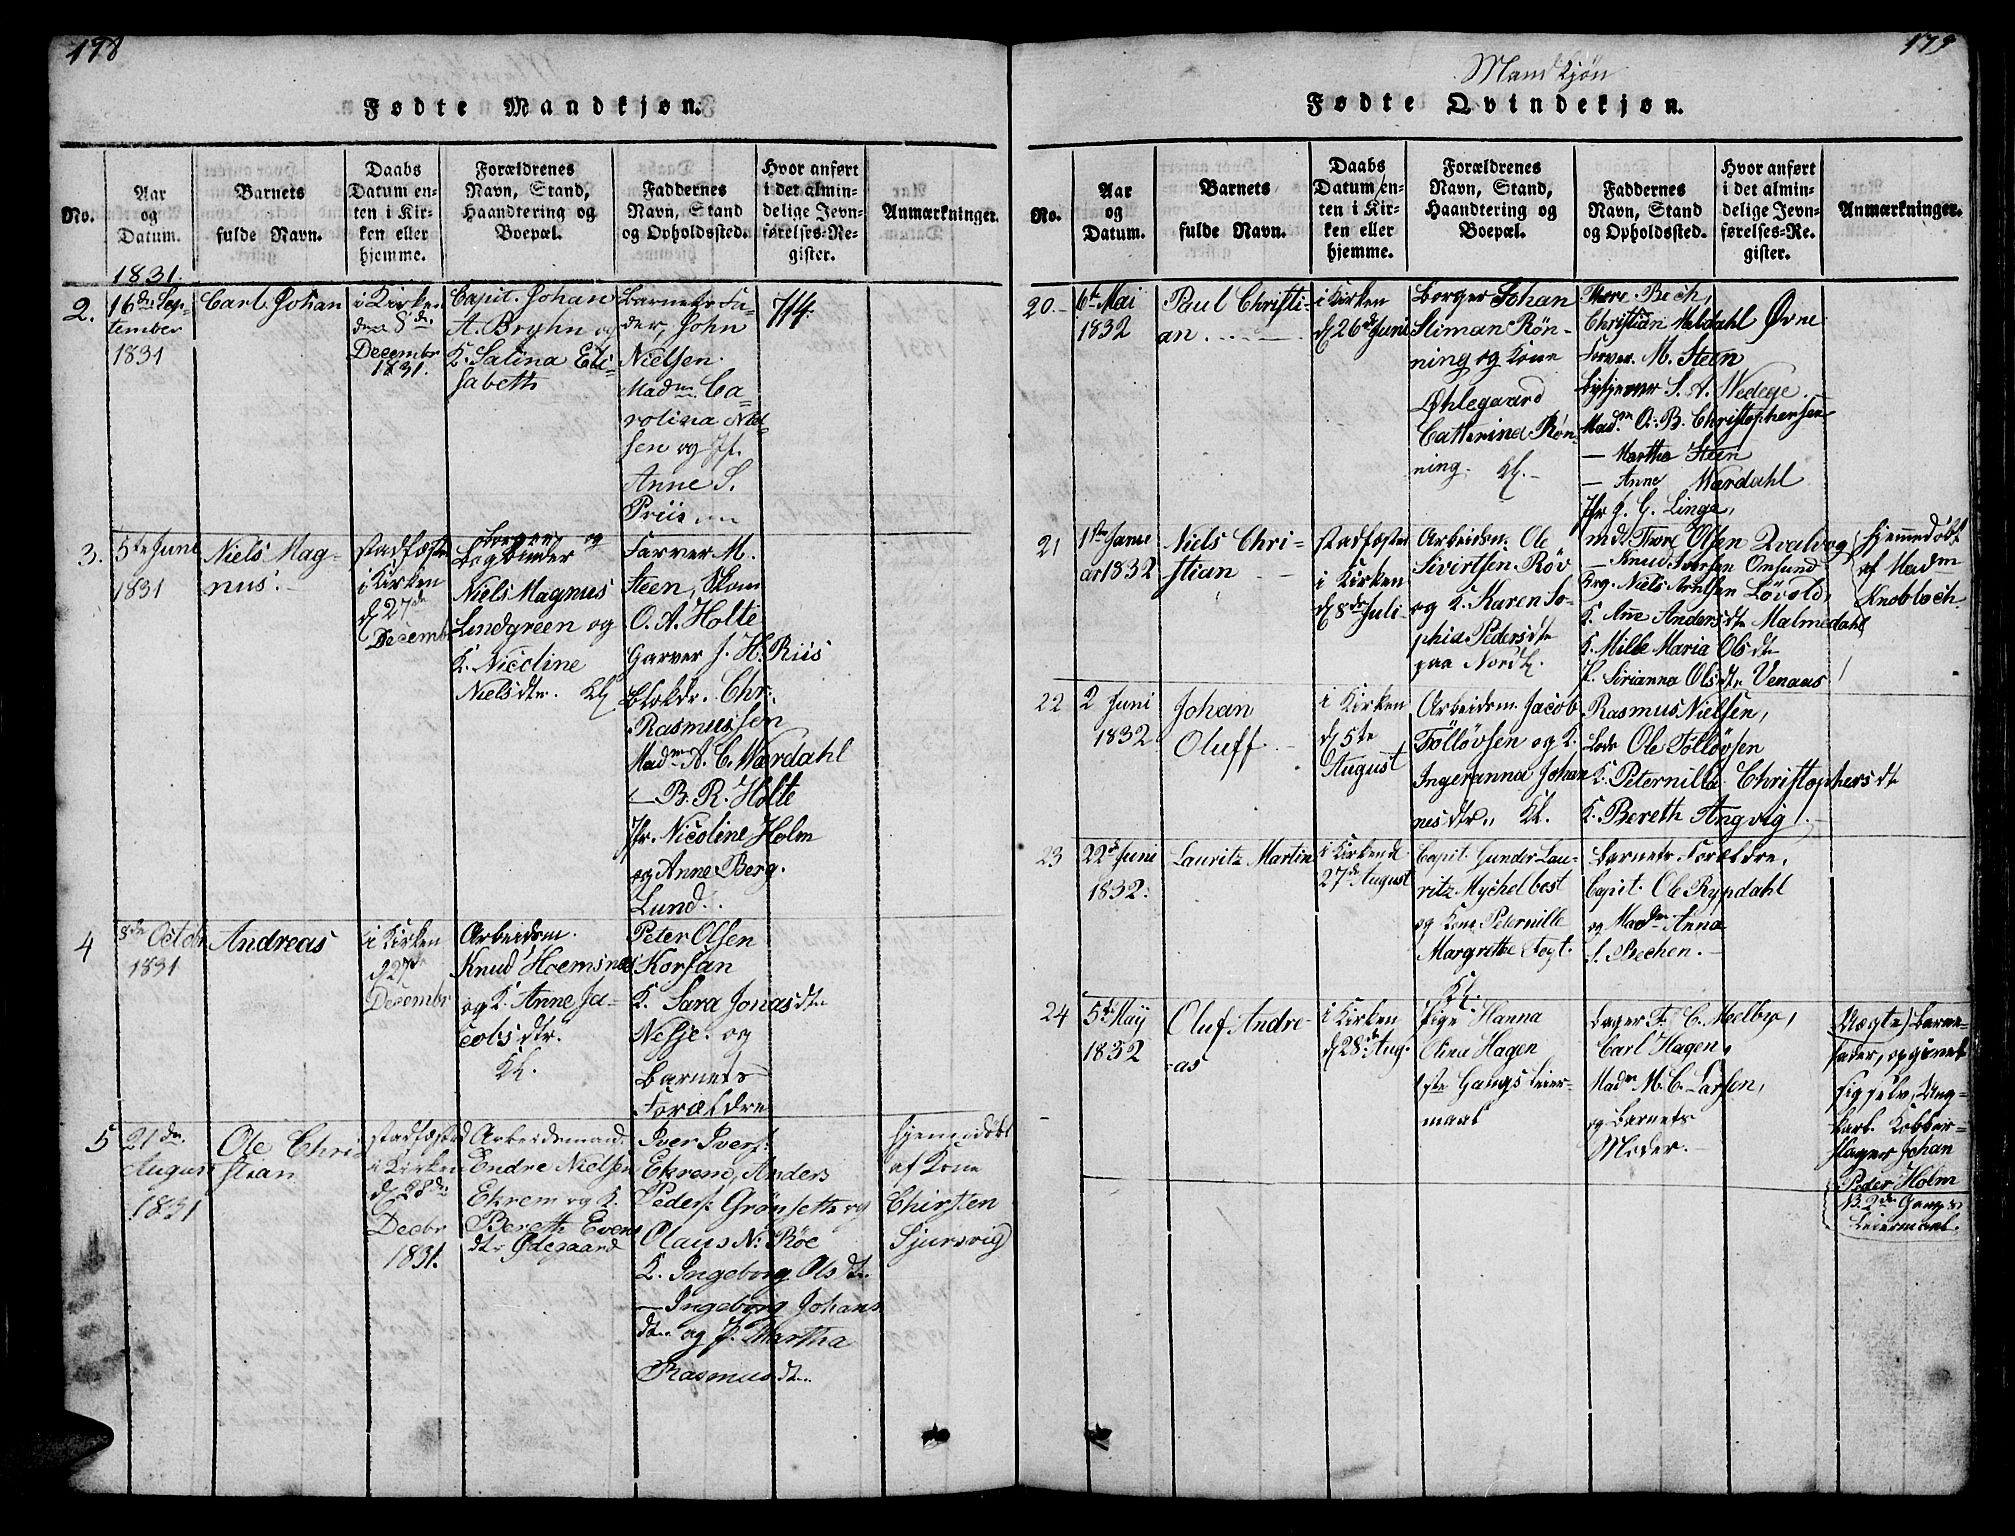 178
Fødte Mandkjøn.
No.
Aar
og
Datum.
Barnets
fulde Navn.
Daabs
Datum en-
ten i Kir-
ken eller
hjemme.
Forældrenes
Navn, Stand,
Haandtering og
Boepæl.
Faddernes
Navn, Stand
og Opholdssted.
Hvor anført
i det almin-
delige Jevn-
førelses-Re-
gister.
Anmærkninger.
1831.
2.
16de Sep-
tember
1831
Carl Johan
i Kirken
den 8de
Decembr
1831.
Capit. Johan
A. Bryhn og
K. Salina Eli-
sabeth
Barnets Fa-
der, John
Nielsen
Madm Ca-
rolina Niel-
sen og Jf.
Anne S.
Priis
714.
3.
5te Juni
1831
Niels Mag-
nus.
stadfæstet
i Kirken
d 27de
Decembr
Borger og
Bogbinder
Niels Magnus
Lindgreen og
K. Nicoline
Nielsdtr. Kl
Farver M.
Steen, Skom
O. A. Holte
Garver J. H. Riis
Blokdr. Chr.
Rasmussen
Madm A. C. Wærdahl
— B. R. Holte
Jfr. Nicoline Holm
og Anne Berg.
Lund.
4
8de Octobr
1831
Andreas
i Kirken
d 27de
Decembr
Arbeidsm.
Knud Hoemsnæs
og K. Anne Ja-
cobsdtr.
Kl.
Peter Olsen
Korsan
K. Sara Jonasdtr
Nesje. og
Barnets
Forældre
5
21de
August
1831
Ole Chri
stian
stadfæsted
i Kirken
d 28de
Decbr
1831.
Arbeidsmand
Endre Nielsen
Ekrem og K.
Bereth Evens
dtr Ødegaard
Iver Ivers.
Ekrem, Anders
Peders. Grønseth og
Olaus N. Røe
K. Ingeborg Olsdtr
— Ingeborg Johans
dtr og P. Martha
Rasmusdtr.
hjemmedøbt
af Kone
Chirsten
Sjursvig
179
Mandkjøn
Fødte Qvindekjøn.
No.
Aar
og
Datum.
Barnets
fulde Navn.
Daabs
Datum en-
ten i Kir-
ken eller
hjemme.
Forældrenes
Navn, Stand,
Haandtering og
Boepæl.
Faddernes
Navn, Stand
og Opholdssted.
Hvor anført
i det almin-
delige Jevn-
førelses-Re-
gister.
Anmærkninger.
20.
6te Mai
1832
Paul Christi-
an
i Kirken
d 26de Juni
Borger Johan
Stiman Røn-
ning og Kone
Øhlegaard
Catherina Røn-
ning. Kl.
Thore Bech,
Christian Meldahl Øvne
Farver M. Steen
S. A. Wedege.
Madm O. B. Christophersen
— Martha Steen
— Anne Wærdahl
Jfr J. G. Linge,
21
1ste Janu
ar 1832
Niels Chri-
stian
stadfæstet
i Kirken
d 8de Juli
Arbeidsm. Ole
Sivertsen Röv
og K. Karen So-
phia Pedersdtr
paa Nordl.
md. Thore Olsen Qvalvog
— Knud Iversen Omsund
Brg. Niels Arntsen Løvold,
K. Ane Andersdtr Malmedahl
K. Mille Maria Olsdtr
P. Sirianna Olsdtr Venaas
hjemmedøbt
af Madm
Knobloch
22
2 Juni
1832
Johan
Oluff
i Kirken
d 5te
August
Arbeidsm. Jacob
Tölløvsen og K.
Ingeranna Johan
nesdtr. Kl.
Rasmus Nielsen,
Lods Ole Tölløvsen
K. Peternilla Christophersdtr
K. Bereth Angvig
23
22de Juni
1832.
Lauritz Martin
i Kirken d
27de August
Capit. Gunder Lau-
ritz Mychelbost
og Kone Peternille
Margrethe Fogt.
Kl.
Barnets Forældre,
Capit. Ole Rypdahl
og Madm Anna
S. Bechen.
24
5te Maij
1832
Oluf Andre-
as
i Kirken
d 28de Aug.
Pige Hanna
Olina Hagen
1ste Gangs Leier-
maal
Bager F. C. Melbye,
Carl Hagen,
Madm M. C. Larsen,
og Barnets
Moder.
(Uægte) Barne-
fader, opgivet
sig selv, Ung-
karl Kobber-
slager Johan
Peder Holm
N. 2den Gangs
Leiermaal.